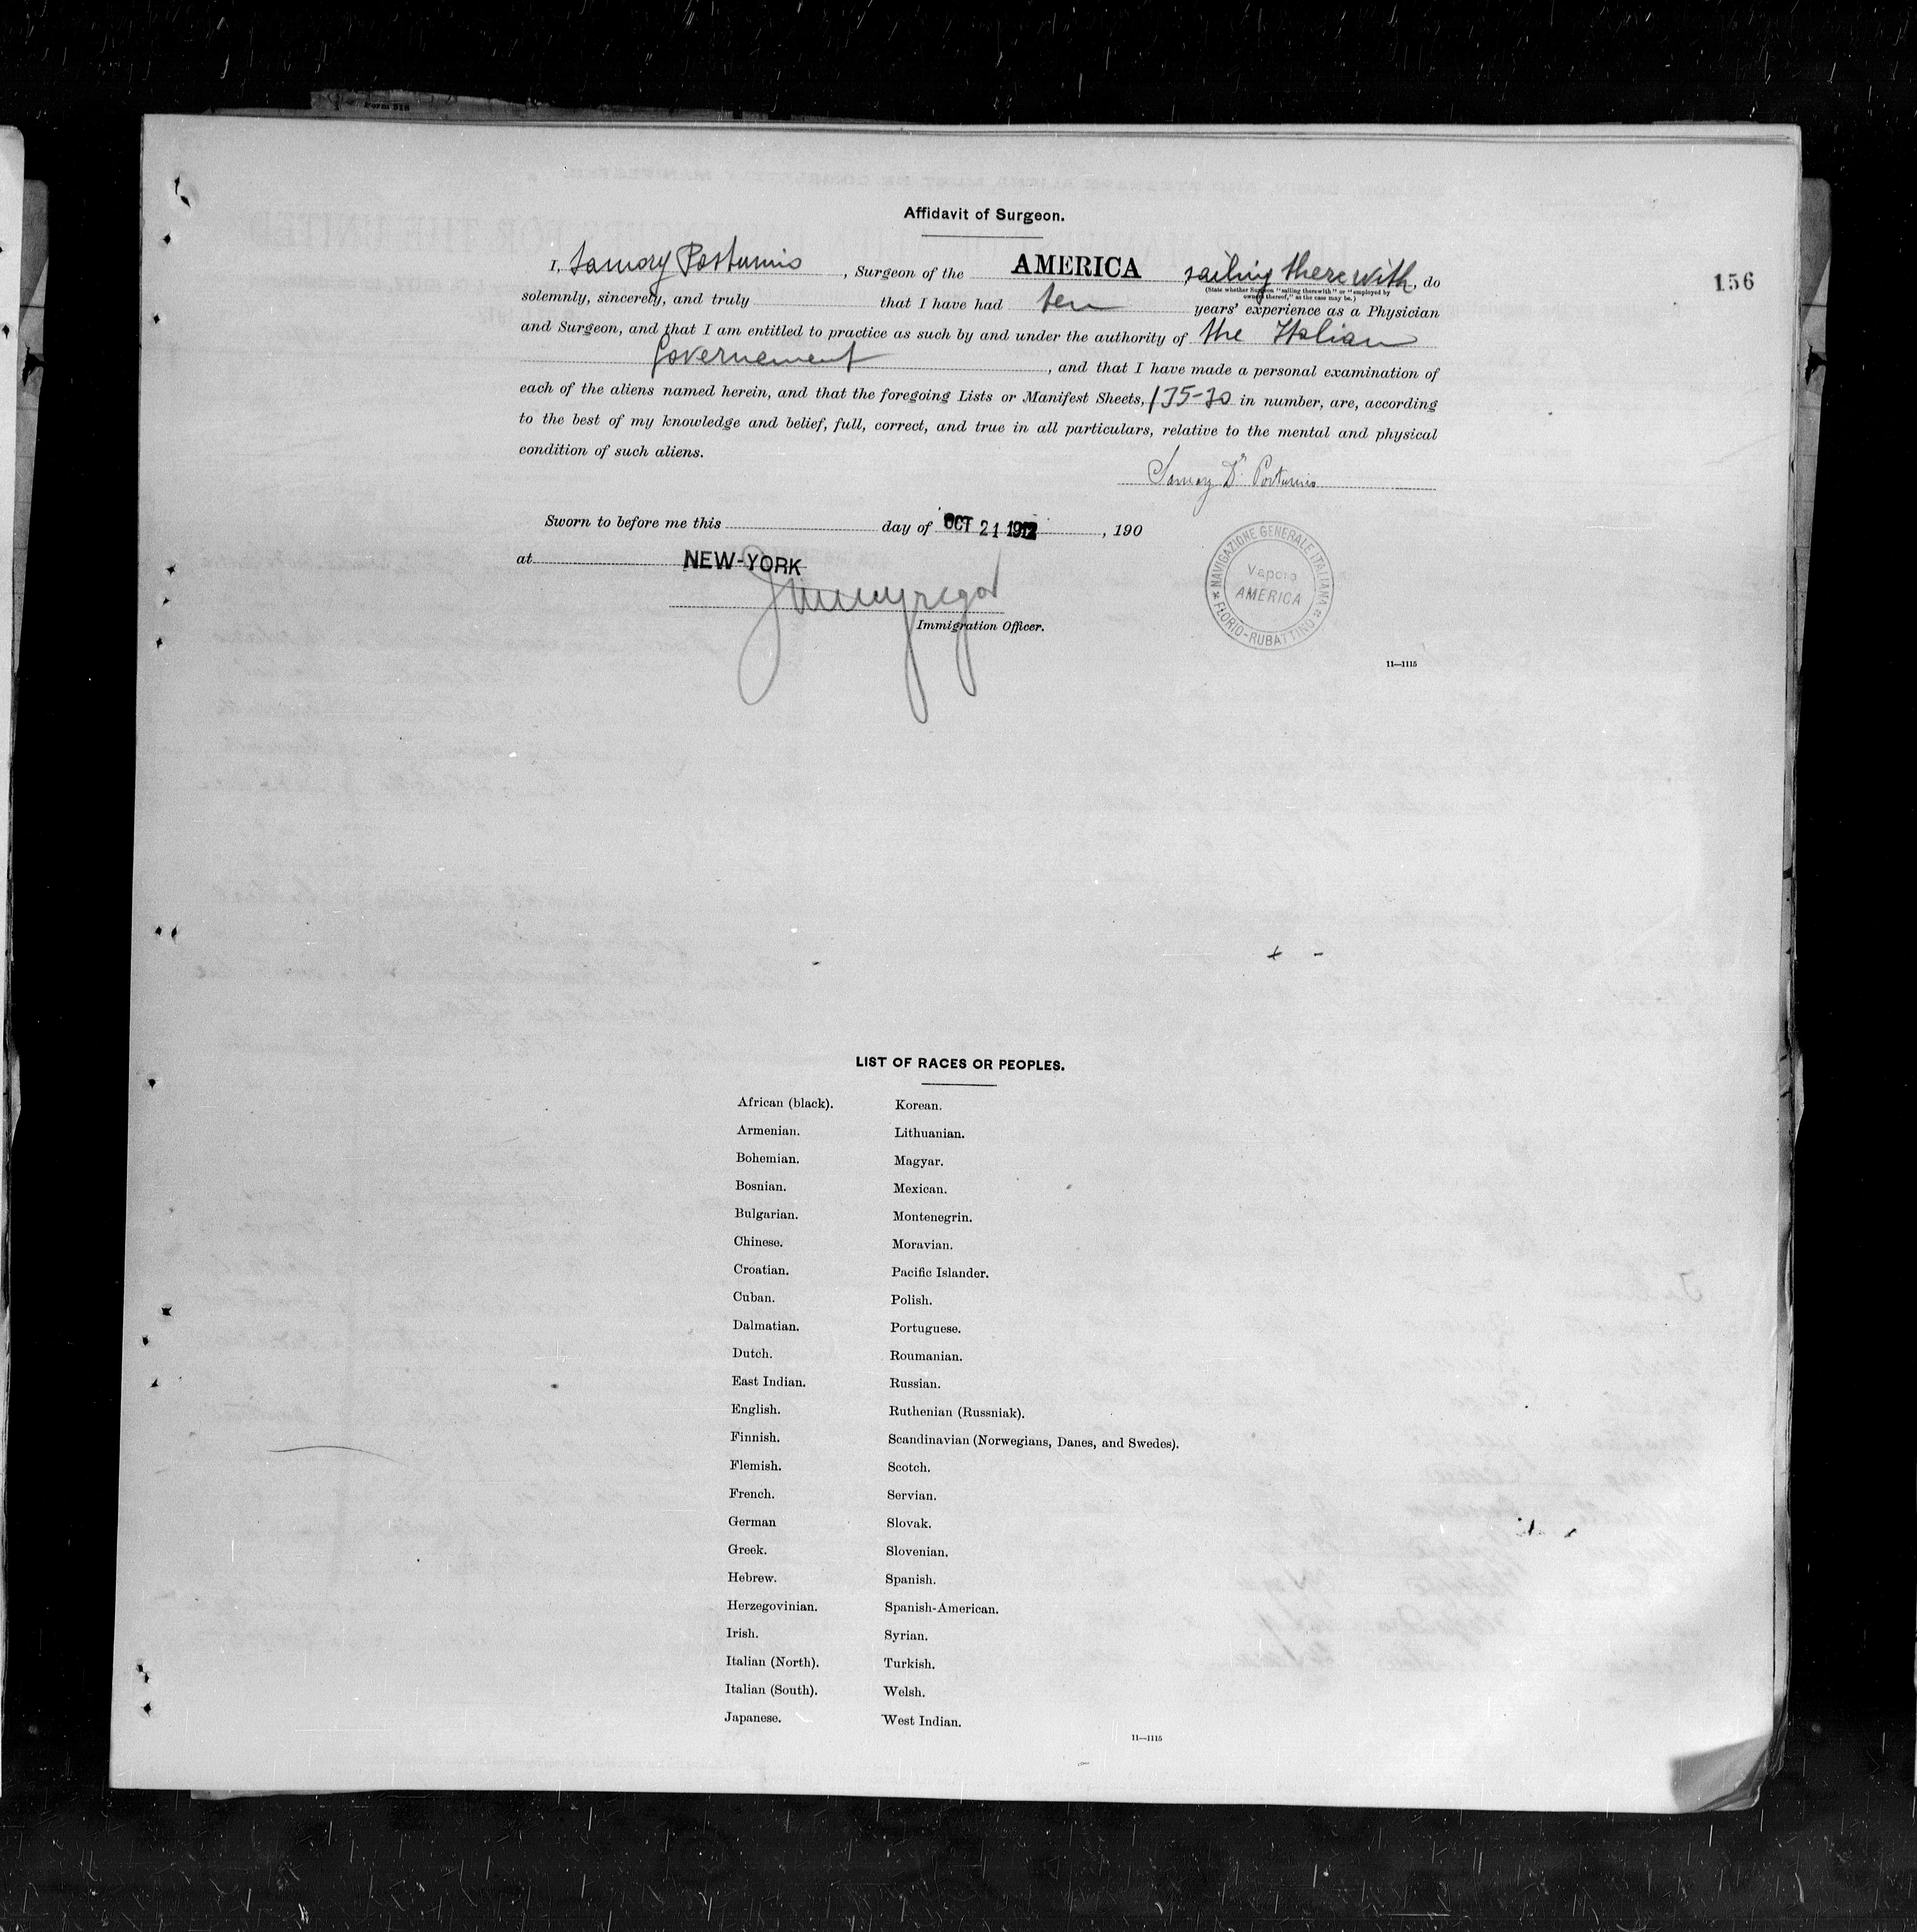 Form 518
Affidavit of Surgeon.
I, Samory Postumio, Surgeon of the AMERICA sailing therewith, do
(State whether Surgeon "sailing therewith" or "employed by
owners thereof," as the case may be.)
156
solemnly, sincerely, and truly that I have had ten years' experience as a Physician
and Surgeon, and that I am entitled to practice as such by and under the authority of the Italian
Governement, and that I have made a personal examination of
each of the aliens named herein, and that the foregoing Lists or Manifest Sheets, in number, are, according
to the best of my knowledge and belief, full, correct, and true in all particulars, relative to the mental and physical
condition of such aliens.
Samory Dr. Postumio
Sworn to before me this day of OCT 21 1912, 190
at NEW-YORK
Immigration Officer.
NAVIGAZIONE GENERALE ITALIANA
Vapore
AMERICA
FLORIO-RUBATTINO
11—1115
LIST OF RACES OR PEOPLES.
African (black).
Armenian.
Bohemian.
Bosnian.
Bulgarian.
Chinese.
Croatian.
Cuban.
Dalmatian.
Dutch.
East Indian.
English.
Finnish.
Flemish.
French.
German
Greek.
Hebrew.
Herzegovinian.
Irish.
Italian (North).
Italian (South).
Japanese.
Korean.
Lithuanian.
Magyar.
Mexican.
Montenegrin.
Moravian.
Pacific Islander.
Polish.
Portuguese.
Roumanian.
Russian.
Ruthenian (Russniak).
Scandinavian (Norwegians, Danes, and Swedes).
Scotch.
Servian.
Slovak.
Slovenian.
Spanish.
Spanish-American.
Syrian.
Turkish.
Welsh.
West Indian.
11—1115